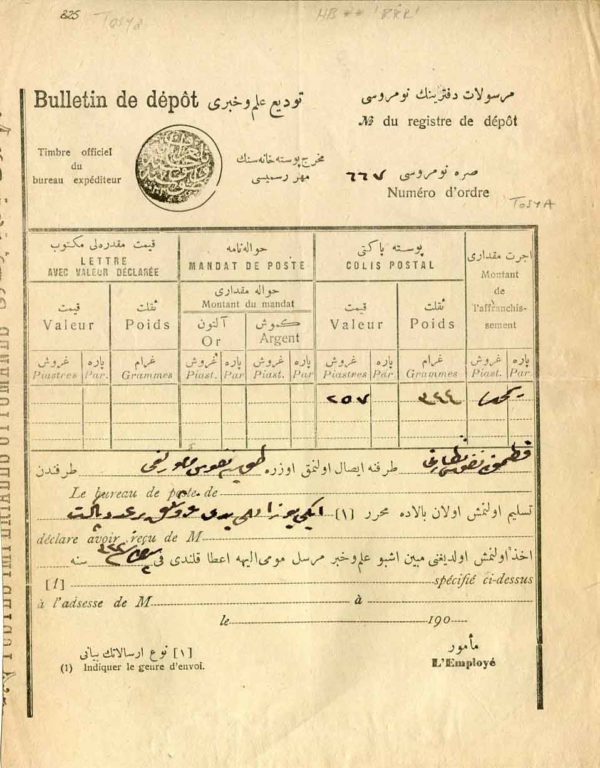 825 Tosya HB ** 'RRR'
Bulletin de dépôt توديع علم و خبرى مرسولات دفترينك نومروسى
№ du registre de dépôt
Timbre officiel
du
bureau expéditeur
مخرج پوسته خانه سنك
مهر رسميسى
صره نومروسى ٦٦٧
Numéro d'ordre
TOSYA
قيمت مقدره لى مكتوب حواله نامه پوسته پاكتى اجرت مقدارى
LETTRE MANDAT DE POSTE COLIS POSTAL Montant
AVEC VALEUR DÉCLARÉE de
l'affranchis-
sement
حواله مقدارى
Montant du mandat
قيمت ثقلت آلتون كموش قيمت ثقلت
Valeur Poids Or Argent Valeur Poids
غروش پاره غرام غروش پاره غروش پاره غروش پاره غرام غروش پاره
Piastres Par. Grammes Piast. Par Piast. Par Piastres Par. Grammes Piast. Par
٢٥٧ ٣٤٤
طرفنه ايصال اولنمق اوزره طرفندن
Le bureau de poste de
تسليم اولنمش اولان بالاده محرر [١] ايكى يوز اللى يدى غروشلق بر عدد پاكت
déclare avoir reçu de M
اخذ اولنمش اولديغنى مبين اشبو علم و خبر مرسل مومى اليهه اعطا قلندى فى سنه
[1] spécifié ci-dessus
à l'adsesse de M à
le 190
[١] نوع ارسالاتك بيانى مأمور
(1) Indiquer le genre d'envoi. L'Employé